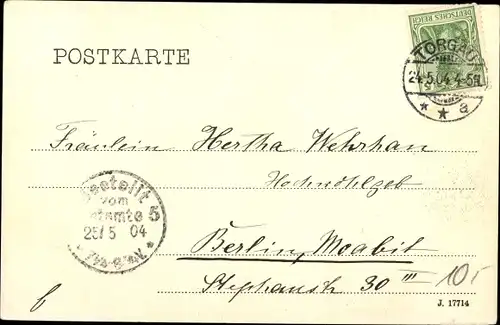 DEUTSCHES REICH
POSTKARTE
TORGAU
24.5.04.4-5N.
* * a
Fräulein Hertha Wehrhan
Bestellt
vom
Postamte 5
25/5 04
Berlin, Moabit
Stephanstr 30 III
10.
J. 17714